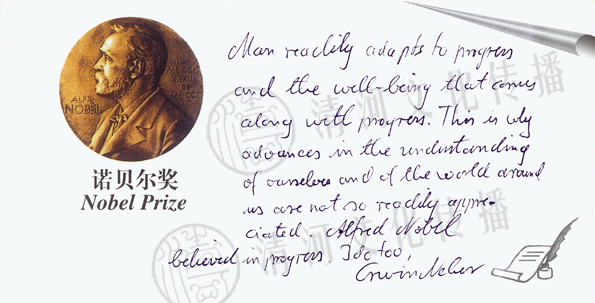 ALFR.
NOBEL
诺贝尔奖
Nobel Prize
Man readily adapts to progress
and the well-being that comes
along with progress. This is why
advances in the understanding
of ourselves and of the world around
us are not so readily appre-
ciated. Alfred Nobel
believed in progress. I do too,
Erwin Neher
清河文化传播
清河文化传播